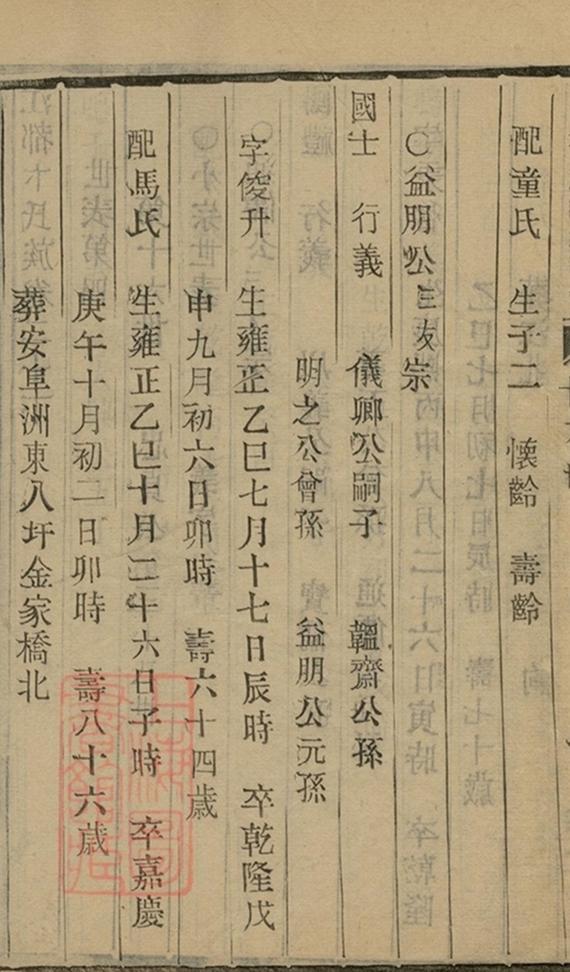 配童氏 生子二 懷齡 壽齡
○益朋公三友宗
國士 行義 儀卿公嗣子 韞齋公孫
明之公曾孫 益朋公元孫
字俊升 生雍正乙巳七月十七日辰時 卒乾隆戊
申九月初六日卯時 壽六十四歲
配馬氏 生雍正乙巳十月二十六日子時 卒嘉慶
庚午十月初二日卯時 壽八十六歲
葬安阜洲東八圩金家橋北